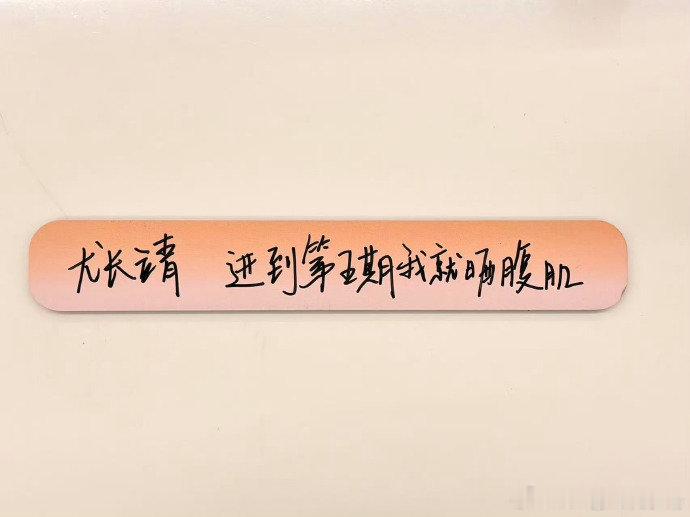 尤长靖 进到第五期我就晒腹肌